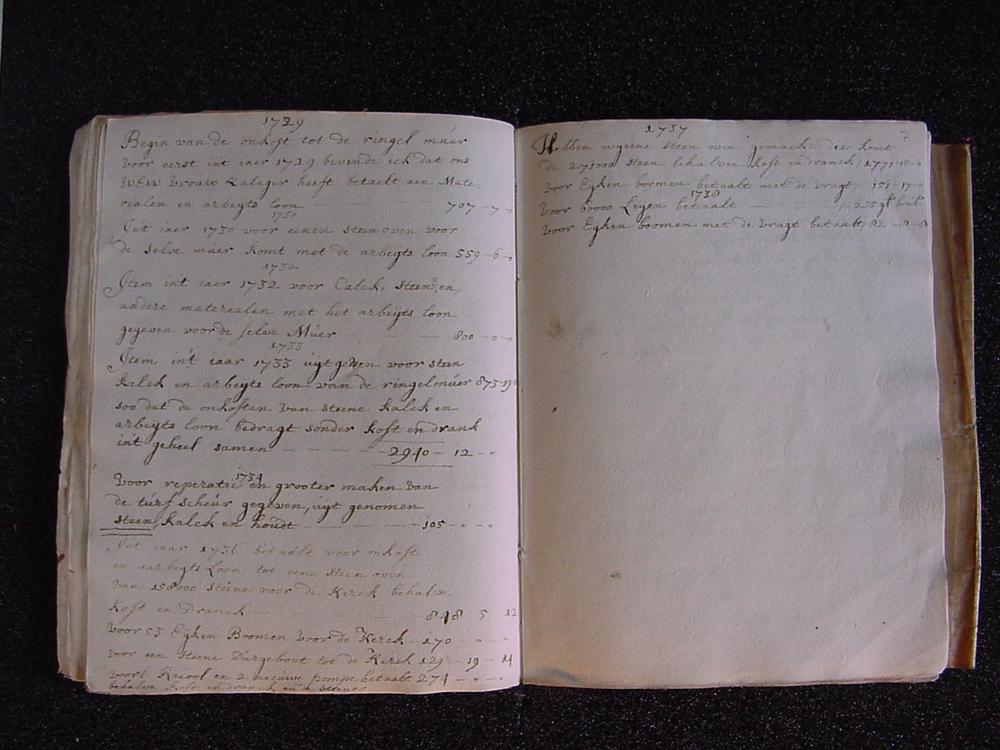 1729
Begin van de onkost tot de ringel muer
voor eerst int iaer 1729 bevinde ick dat ons
Vrouw Zaliger heeft betaelt aen Mate-
rialen en arbeyts loon 707-7-
1730
iaer 1730 voor eenen steen oven voor
de selve muer komt met de arbeyts loon 559-6-
1732
Item int iaer 1732 voor Calck, steen, en
andere materealen met het arbeyts loon
gegeven voor de selve Muer 800-0-0
1733
Item int iaar 1733 uyt geven voor steen
kalck en arbeyts loon van de ringelmuer 873-19
soo dat de onkosten van steene kalck en
arbeyts loon bedragt sonder kost en drank
int geheel samen 2940-12-"
1734
Voor reperatie en grooter maken van
de turf scheur gegeven, uyt genomen
steen, kalck en houdt 105 - " - "
iaar 1736 betaalt voor onkoste
en aarbeyts Loon tot eene steen oven
van 158000 steene voor de Kerck behalve
kost en Dranck 848 5 12
voor 53 Eyken Boomen voor de Kerck 270 " "
voor een steene tot de Kerck 129-19-14
en 2 nieuwe pompe betaalt 274 - " - "
behalve kost en dranck en de steene
1737 7
Hebben steen oven gemackt die komt
de 271000 steen behalven kost en dranck 1771-15-
voor Eyken boomen betaalt met de vragt, 151-17-
1738
Voor 60000 Leyen betaalt 225
voor Eyken boomen met de vragt betaalt 82-18-8